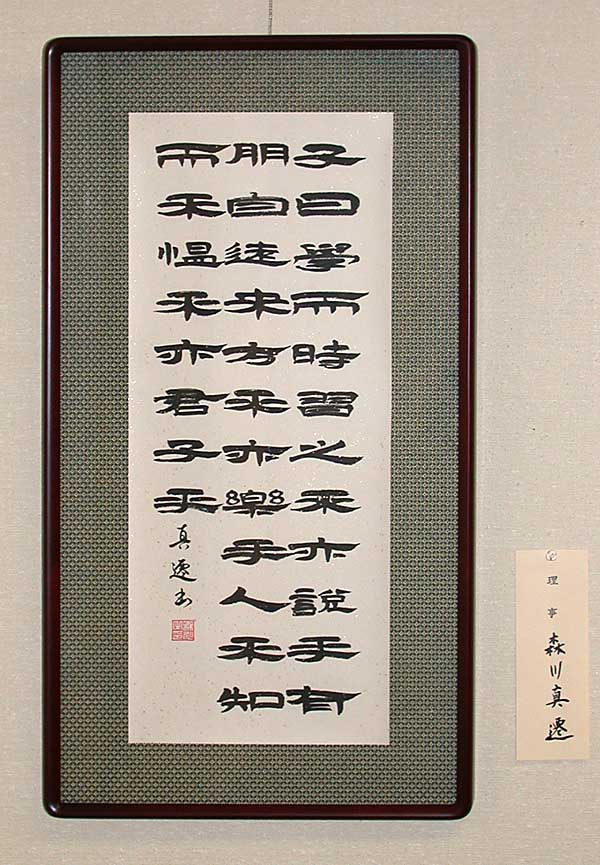 子曰學而時習之不亦説乎有
朋自遠来方不亦樂乎人不知
而不慍不亦君子乎
真遷書
理事 森川真遷